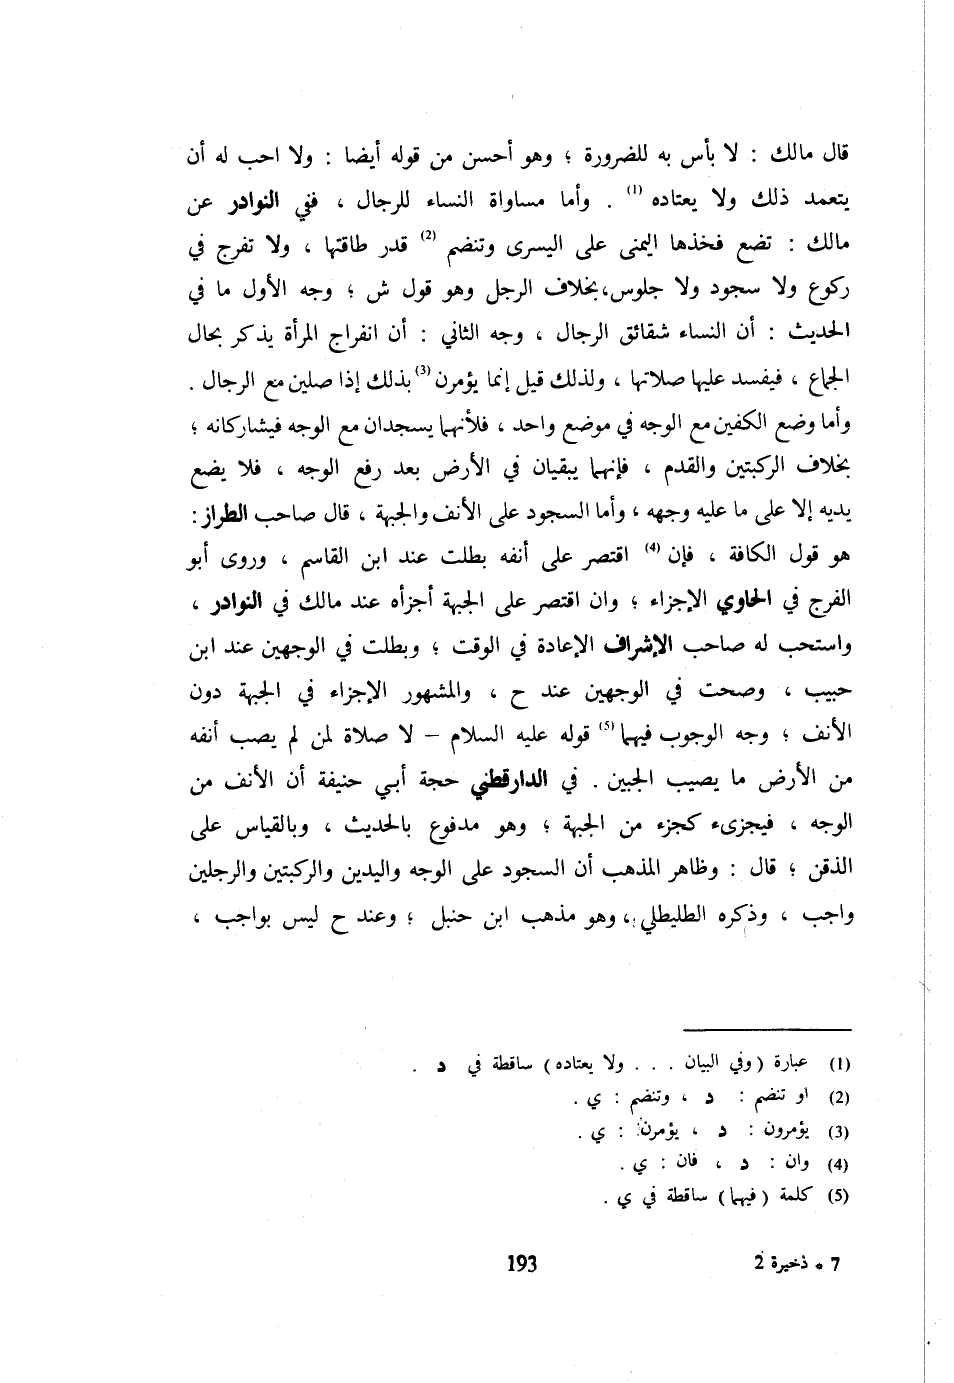 قال مالك : لا بأس به للضرورة ؛ وهو أحسن من قوله أيضا : ولا احب له أن
يتعمد ذلك ولا يعتاده (1) . وأما مساواة النساء للرجال ، ففي النوادر عن
مالك : تضع فخذها اليمنى على اليسرى وتنضم (2) قدر طاقتها ، ولا تفرج في
ركوع ولا سجود ولا جلوس،بخلاف الرجل وهو قول ش ؛ وجه الأول ما في
الحديث : أن النساء شقائق الرجال ، وجه الثاني : أن انفراج المرأة يذكر بحال
الجماع ، فيفسد عليها صلاتها ، ولذلك قيل إنما يؤمرن (3) بذلك إذا صلين مع الرجال .
وأما وضع الكفين مع الوجه في موضع واحد ، فلأنهما يسجدان مع الوجه فيشاركانه ؛
بخلاف الركبتين والقدم ، فإنهما يبقيان في الأرض بعد رفع الوجه ، فلا يضع
يديه إلا على ما عليه وجهه ، وأما السجود على الأنف والجبهة ، قال صاحب الطراز :
هو قول الكافة ، فإن (4) اقتصر على أنفه بطلت عند ابن القاسم ، وروى أبو
الفرج في الحاوي الإجزاء ؛ وان اقتصر على الجبهة أجزأه عند مالك في النوادر ،
واستحب له صاحب الإشراف الإعادة في الوقت ؛ وبطلت في الوجهين عند ابن
حبيب ، وصحت في الوجهين عند ح ، والمشهور الإجزاء في الجبهة دون
الأنف ؛ وجه الوجوب فيهما (5) قوله عليه السلام – لا صلاة لمن لم يصب أنفه
من الأرض ما يصيب الجبين . في الدارقطني حجة أبي حنيفة أن الأنف من
الوجه ، فيجزىء كجزء من الجبهة ؛ وهو مدفوع بالحديث ، وبالقياس على
الذقن ؛ قال : وظاهر المذهب أن السجود على الوجه واليدين والركبتين والرجلين
واجب ، وذكره الطليطلي ، وهو مذهب ابن حنبل ؛ وعند ح ليس بواجب ،
(1) عبارة (وفي البيان . . . ولا يعتاده) ساقطة في د .
(2) او تنضم : د ، وتنضم : ي .
(3) يؤمرون : د ، يؤمرن : ي .
(4) وان : د ، فان : ي .
(5) كلمة (فيهما) ساقطة في ي .
7 * ذخيرة 2
193